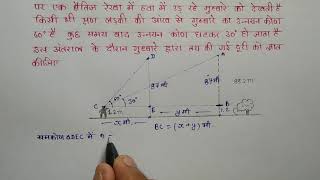 पर एक क्षैतिज रेखा में हवा में उड़ रहे गुब्बारे को देखती है
किसी भी क्षण लड़की की आँख से गुब्बारे का उन्नयन कोण
60° है कुछ समय बाद उन्नयन कोण घटकर 30° हो जाता है
इस अंतराल के दौरान गुब्बारे द्वारा तय की गई दूरी को ज्ञात
कीजिए
D
A
60°
30°
88.2 मी
C
E
B
1.2 मी
1.2
x मी
y मी
BC = (x+y) मी
समकोण ΔDEC में